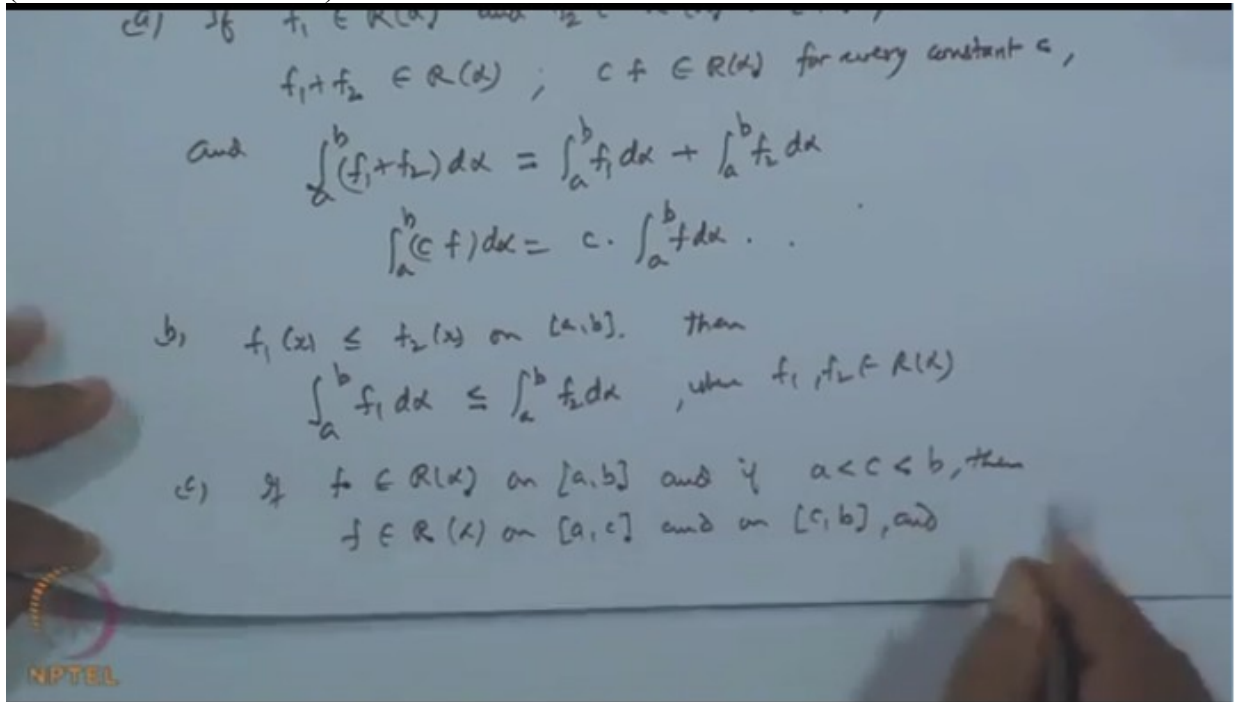 (a) If f₁ ∈ R(α) and f₂ ∈ R(α)
f₁+f₂ ∈ R(α) ; c f ∈ R(α) for every constant c,
and ∫ₐᵇ(f₁+f₂)dα = ∫ₐᵇ f₁dα + ∫ₐᵇ f₂dα
∫ₐᵇ(c f)dα = c. ∫ₐᵇ f dα .
b) f₁(x) ≤ f₂(x) on [a,b]. Then
∫ₐᵇ f₁ dα ≤ ∫ₐᵇ f₂dα , when f₁,f₂ ∈ R(α)
(c) If f ∈ R(α) on [a,b] and if a<c<b, then
f ∈ R(α) on [a,c] and on [c,b], and
NPTEL